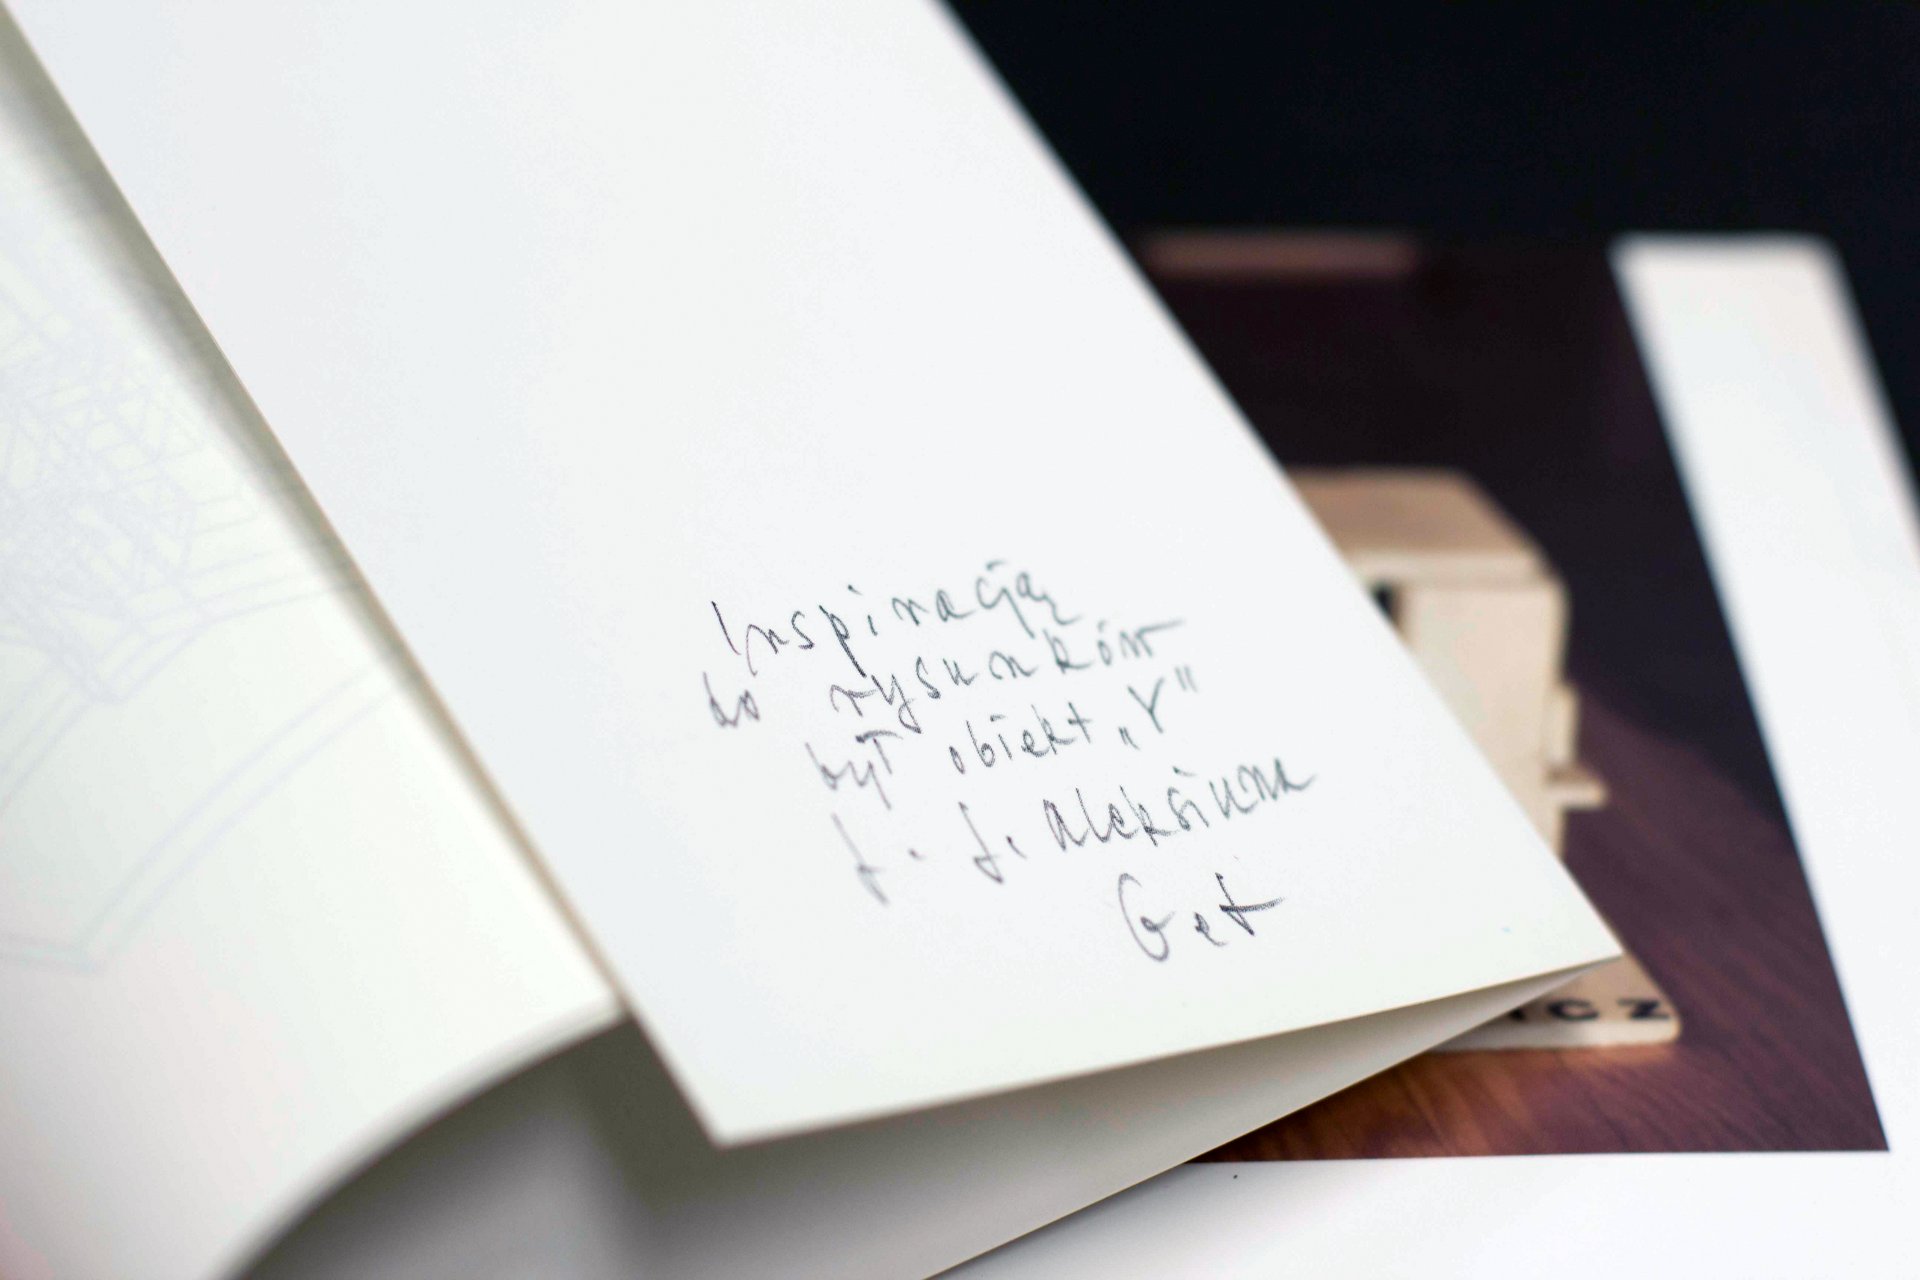 Inspiracją
do rysunków
był obiekt „Y"
J. J. Aleksiuna
Get
CZ